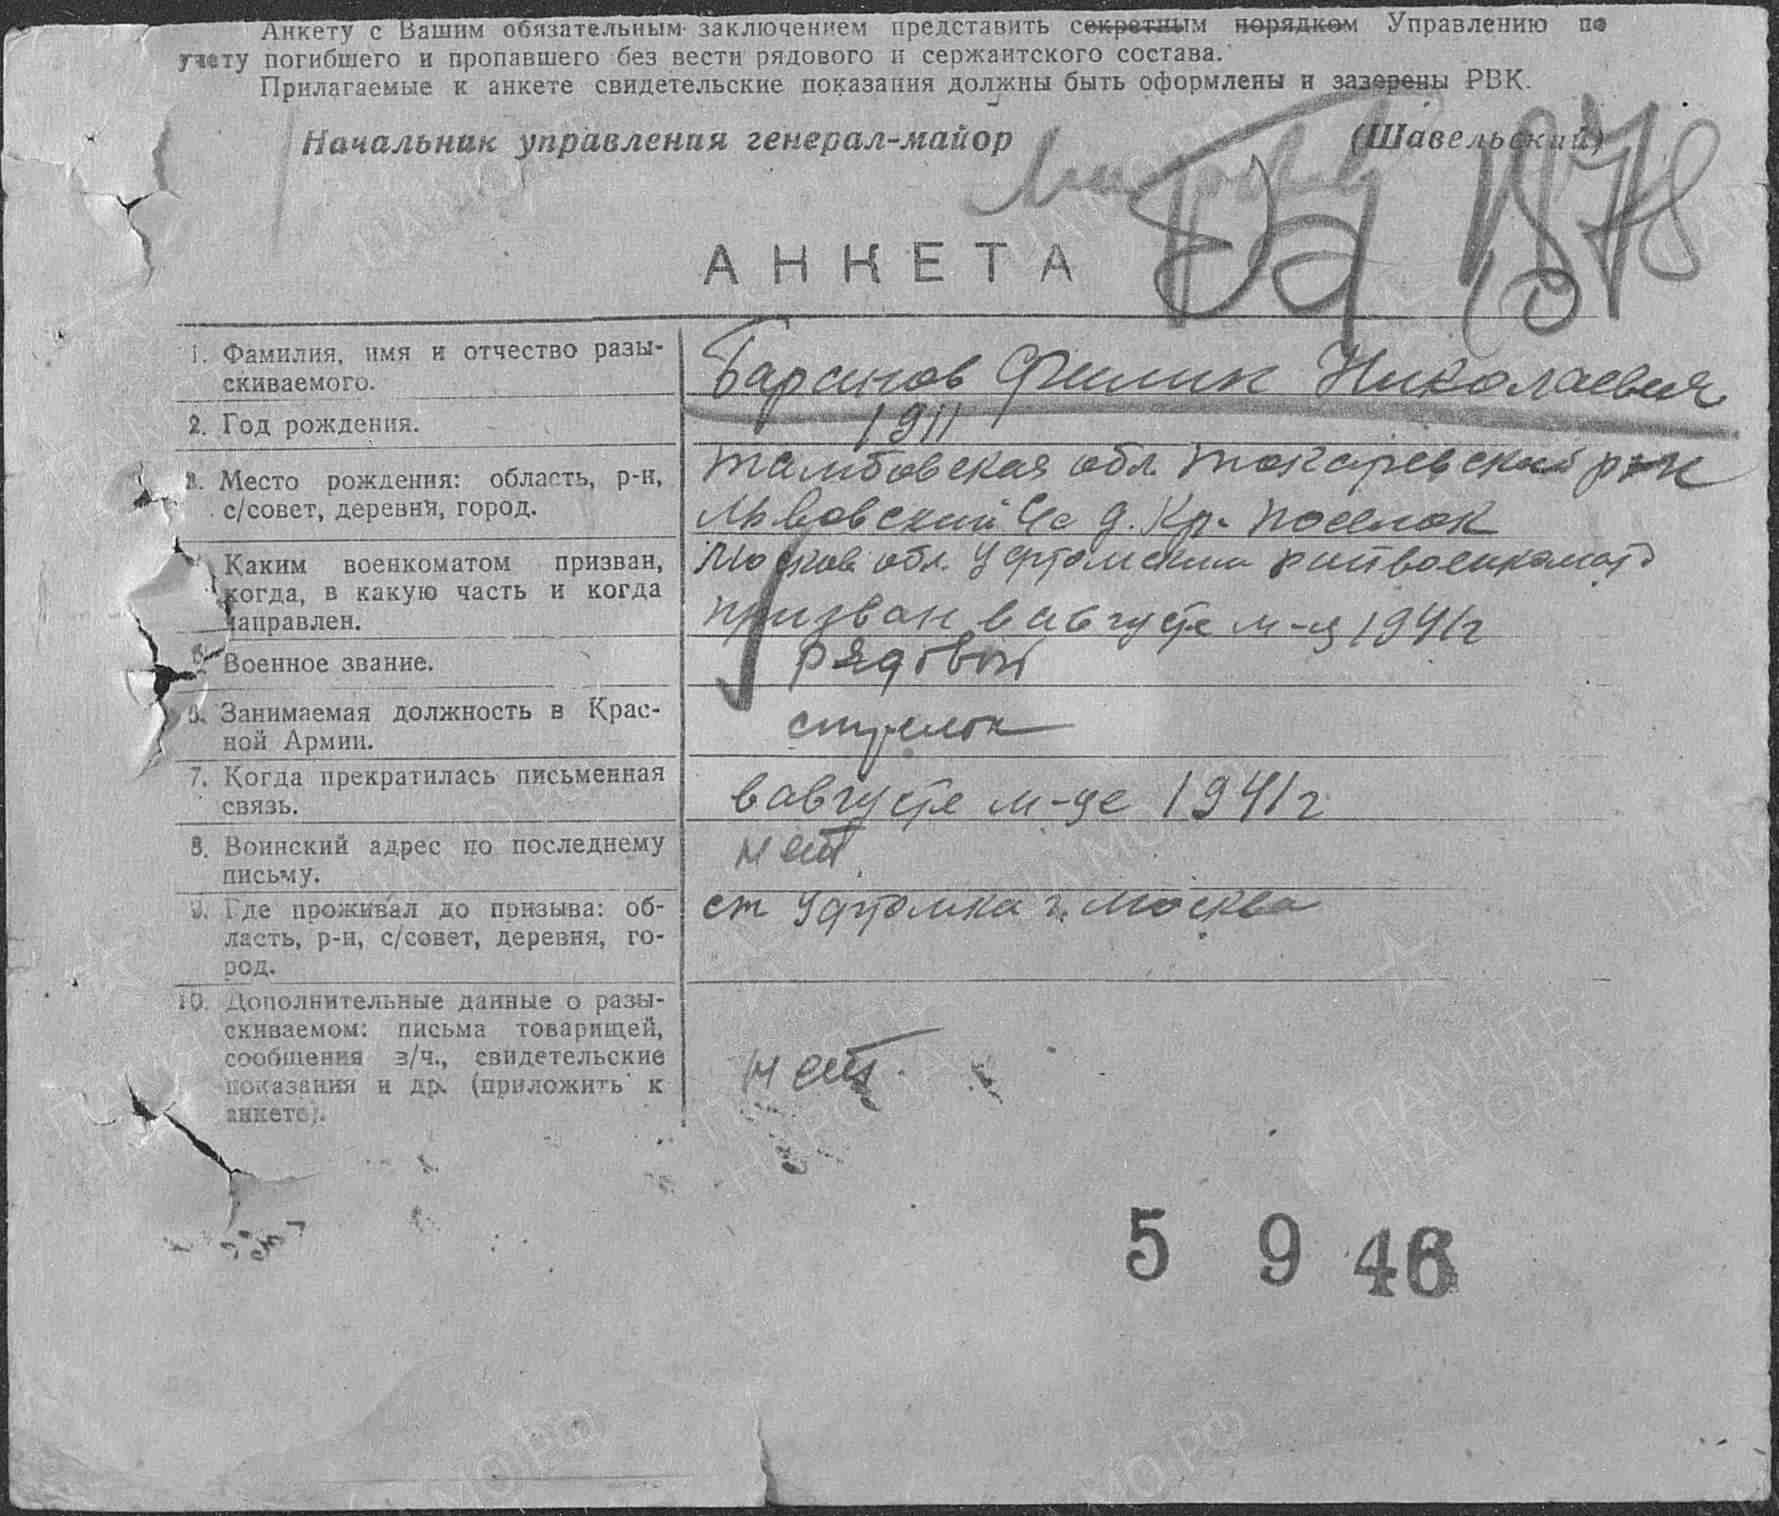 Анкету с Вашим обязательным заключением представить секретным порядком Управлению по
учету погибшего и пропавшего без вести рядового и сержантского состава.
Прилагаемые к анкете свидетельские показания должны быть оформлены и заверены РВК.
Начальник управления генерал-майор (Шавельский)
1878
АНКЕТА
1. Фамилия, имя и отчество разы-
скиваемого.
Барсинов Филип Николаевич
2. Год рождения.
1911
3. Место рождения: область, р-н,
с/совет, деревня, город.
Тамбовская обл. Токаревский р-н
Львовский с/с д. Кр. Поселок
Каким военкоматом призван,
когда, в какую часть и когда
направлен.
Москов обл. Ухтомский
призван в августе м-я 1941 г
Военное звание.
рядовой
6. Занимаемая должность в Крас-
ной Армии.
стрелок
7. Когда прекратилась письменная
связь.
в августе м-це 1941 г
8. Воинский адрес по последнему
письму.
нет
9. Где проживал до призыва: об-
ласть, р-н, с/совет, деревня, го-
род.
ст Ухтомка г. Москва
10. Дополнительные данные о разы-
скиваемом: письма товарищей,
сообщения в/ч., свидетельские
показания и др. (приложить к
анкете).
нет.
5 9 46